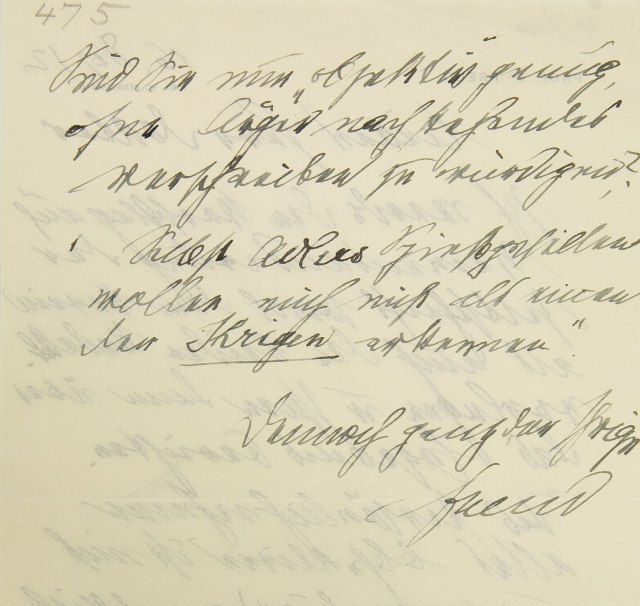 475
Sind Sie nun „objektiv genug,
ohne Ärger nachstehendes
Verschreiben zu würdigen?
' Selbst Adlers Spießgesellen
wollen mich nicht als einen
der Ihrigen erkennen"
Dennoch ganz der Ihrige
Freud